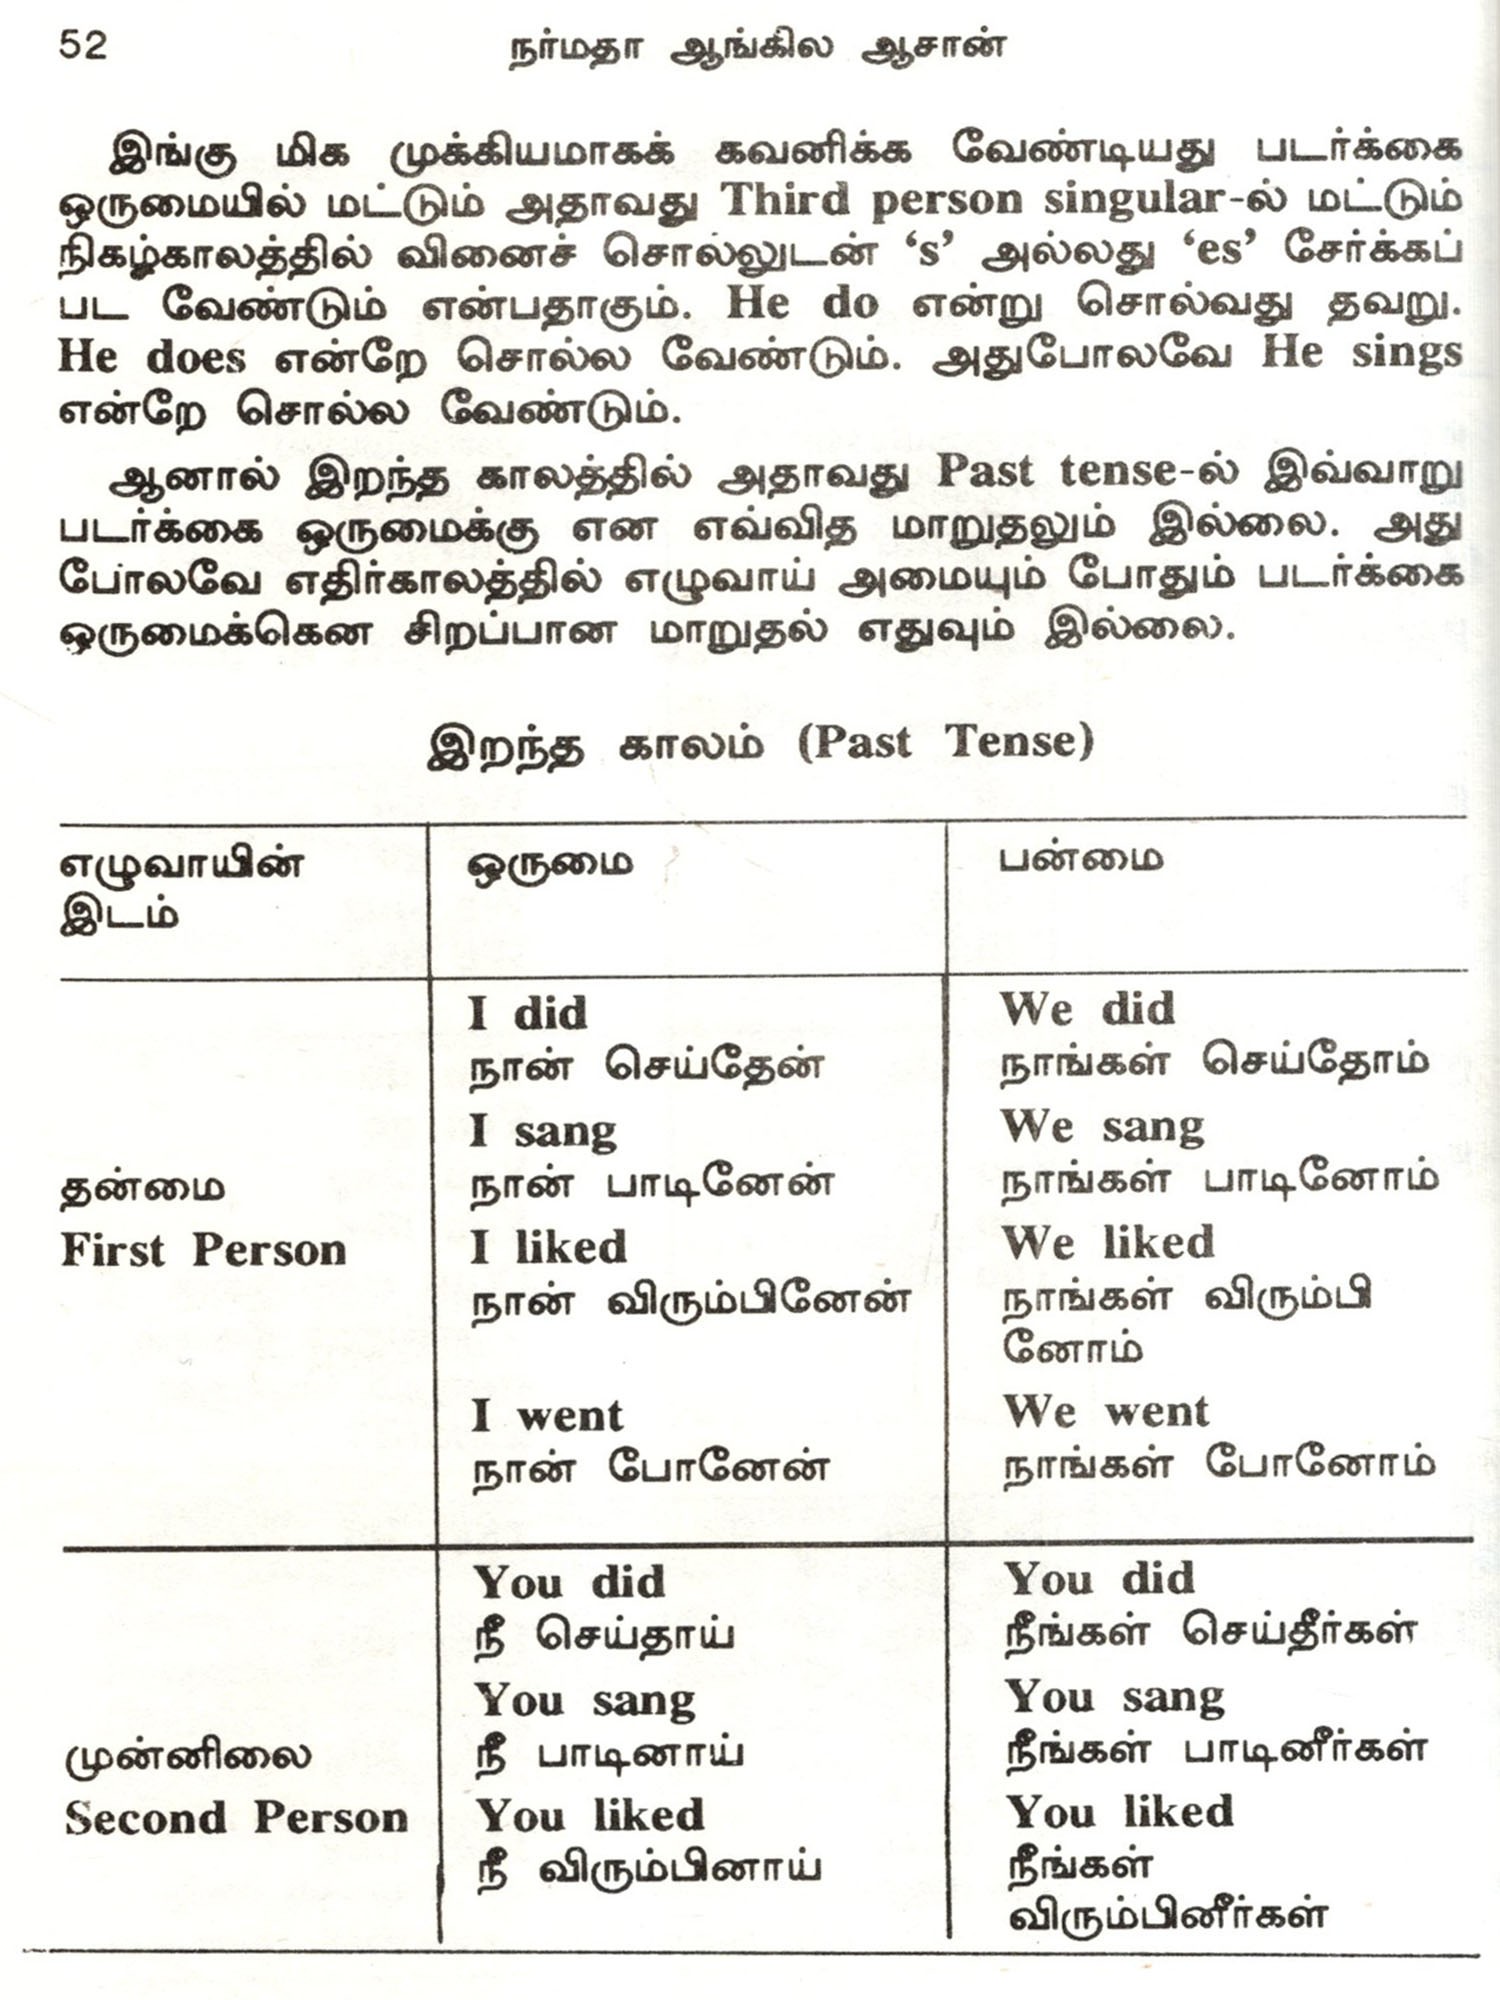 52 நர்மதா ஆங்கில ஆசான்
இங்கு மிக முக்கியமாகக் கவனிக்க வேண்டியது படர்க்கை
ஒருமையில் மட்டும் அதாவது Third person singular-ல் மட்டும்
நிகழ்காலத்தில் வினைச் சொல்லுடன் ‘s’ அல்லது ‘es’ சேர்க்கப்
பட வேண்டும் என்பதாகும். He do என்று சொல்வது தவறு.
He does என்றே சொல்ல வேண்டும். அதுபோலவே He sings
என்றே சொல்ல வேண்டும்.
ஆனால் இறந்த காலத்தில் அதாவது Past tense-ல் இவ்வாறு
படர்க்கை ஒருமைக்கு என எவ்வித மாறுதலும் இல்லை. அது
போலவே எதிர்காலத்தில் எழுவாய் அமையும் போதும் படர்க்கை
ஒருமைக்கென சிறப்பான மாறுதல் எதுவும் இல்லை.
இறந்த காலம் (Past Tense)
எழுவாயின்
இடம்
ஒருமை
பன்மை
தன்மை
First Person
I did
நான் செய்தேன்
I sang
நான் பாடினேன்
I liked
நான் விரும்பினேன்
I went
நான் போனேன்
We did
நாங்கள் செய்தோம்
We sang
நாங்கள் பாடினோம்
We liked
நாங்கள் விரும்பி
னோம்
We went
நாங்கள் போனோம்
முன்னிலை
Second Person
You did
நீ செய்தாய்
You sang
நீ பாடினாய்
You liked
நீ விரும்பினாய்
You did
நீங்கள் செய்தீர்கள்
You sang
நீங்கள் பாடினீர்கள்
You liked
நீங்கள்
விரும்பினீர்கள்